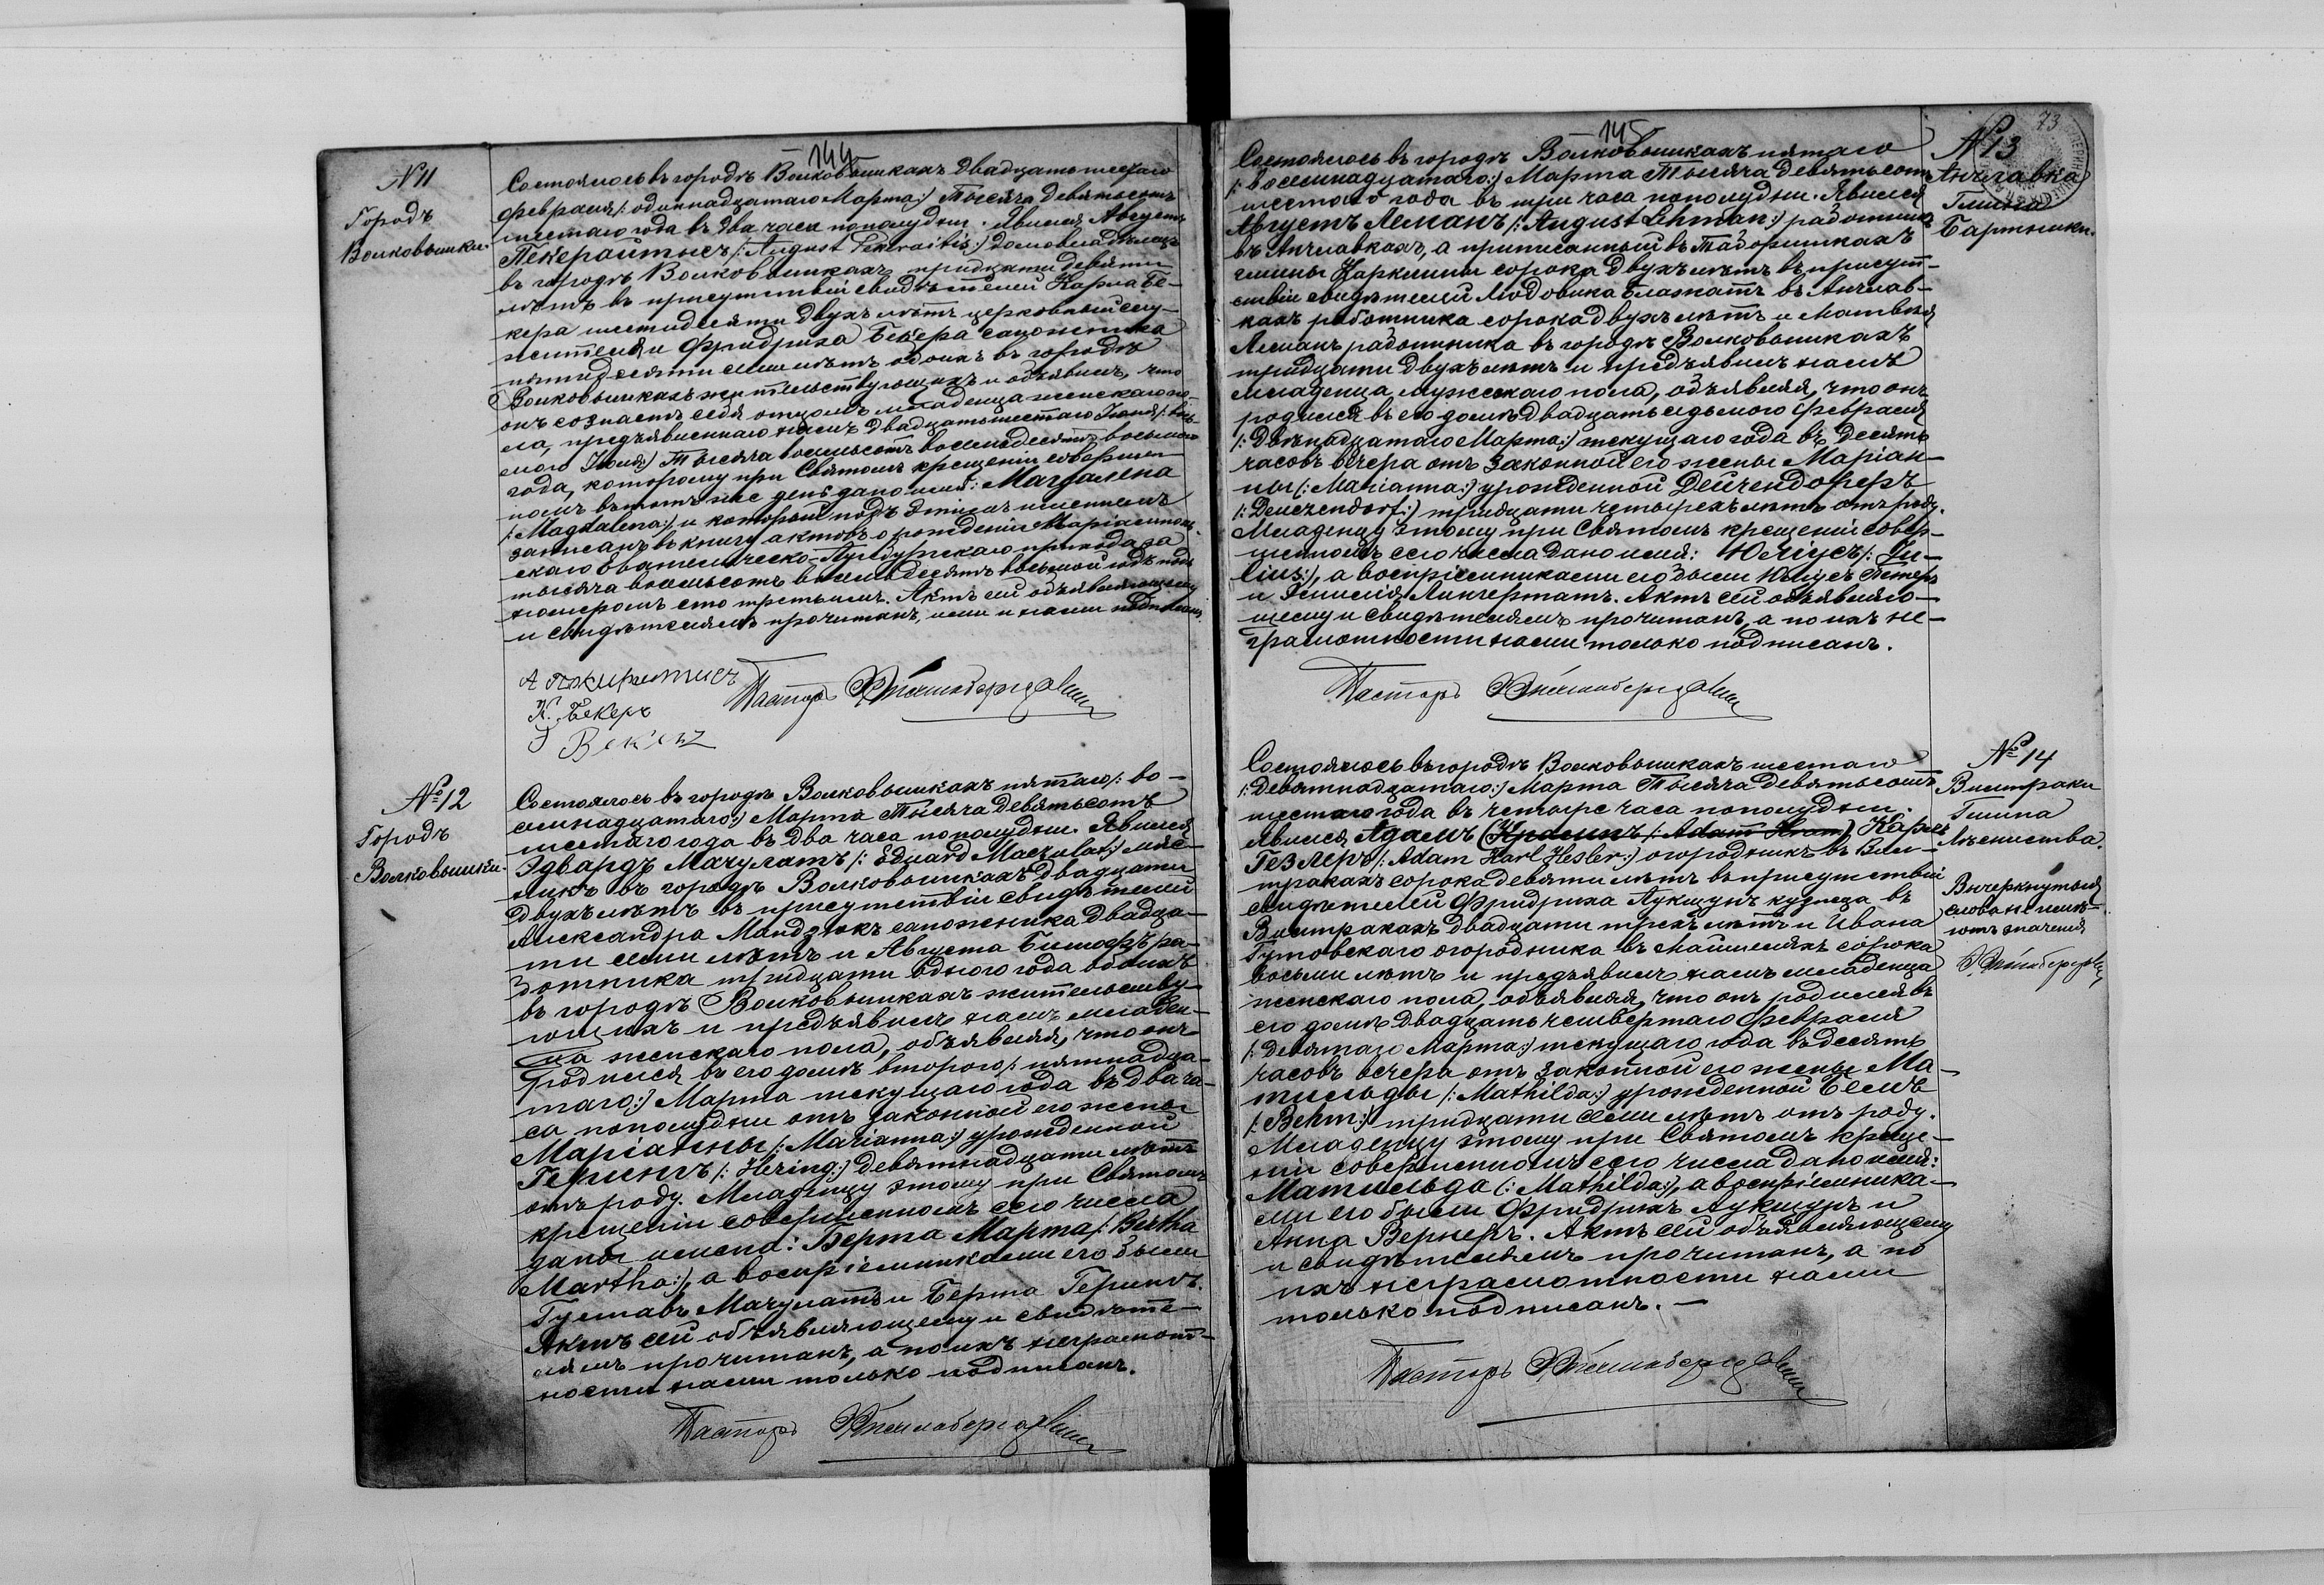 -144-
№ 11
Городъ
Волковышки.
Состоялось въ городѣ Волковышкахъ двадцать шестаго
февраля /: одиннадцатаго Марта:/ Тысяча девятьсотъ
шестаго года въ два часа пополудни. Явился Августъ
Пекерайтысъ /: August Pekeraitis:/ домовладѣлецъ
въ городѣ Волковышкахъ тридцати девяти
лѣтъ въ присутствіи свидѣтелей Карла Бе-
кера шестидесяти двухъ лѣтъ церковный слу-
житель и Фридриха Бекера сапожника
пятидесяти семи лѣтъ обоихъ въ городѣ
Волковышкахъ жительствующихъ и объявилъ, что
онъ сознаетъ себя отцомъ младенца женскаго по-
ла, предъявленнаго намъ двадцать шестаго Іюня /: вось-
маго Іюля:/ Тысяча восемьсотъ восемьдесятъ восьмаго
года, которому при Святомъ крещеніи совершен-
номъ въ тотъ же день дано имя: Магдалена
/: Magdalena:/ и который подъ этимъ именемъ
записанъ въ книгу актовъ о рожденіи Маріампол-
скаго Евангелическо-Аугсбургскаго прихода за
тысяча восемьсотъ восемьдесятъ восьмой годъ подъ
номеромъ сто третьимъ. Актъ сей объявляющему
и свидѣтелямъ прочитанъ, ими и нами подписанъ.
К. Бекеръ
Пасторъ
№ 12
Городъ
Волковышки.
Состоялось въ городѣ Волковышкахъ пятаго /: во-
семнадцатаго:/ Марта Тысяча девятьсотъ
шестаго года въ два часа пополудни. Явился
Эдвардъ Мачулатъ /: Eduard Maczulat:/ мяс-
никъ въ городѣ Волковышкахъ двадцати
двухъ лѣтъ въ присутствіи свидѣтелей
Александра Мандзюкъ сапожника двадца-
ти семи лѣтъ и Августа Бишофъ ра-
ботника тридцати одного года обоихъ
въ городѣ Волковышкахъ жительству-
ющихъ и предъявилъ намъ младен-
ца женскаго пола, объявляя, что онъ
родился въ его домѣ втораго /: пятнадца-
таго:/ Марта текущаго года въ два ча-
са пополудни отъ законной его жены
Маріанны /: Marianna:/ урожденной
Герингъ /: Hering:/ девятнадцати лѣтъ
отъ роду. Младенцу этому при Святомъ
крещеніи совершенномъ сего числа
даны имена: Берта Марта /: Bertha
Martha:/, а воспріемниками его были
Густавъ Мачулатъ и Берта Герингъ.
Актъ сей объявляющему и свидѣте-
лямъ прочитанъ, а по ихъ неграмот-
ности нами только подписанъ.
Пасторъ
-145-
73
№ 13
Антлавка
Гмина
Бартники.
Состоялось въ городѣ Волковышкахъ пятаго
/: восемнадцатаго:/ Марта Тысяча девятьсотъ
шестаго года въ три часа пополудни. Явился
Августъ Леманъ /: August Lehman:/ работникъ
въ Антлавкахъ, а приписанный въ Таборишкахъ
гмины Каркلины сорока двухъ лѣтъ въ присут-
ствіи свидѣтелей Людовика Блазкатъ въ Антлав-
кахъ работника сорока двухъ лѣтъ и Матвея
Леманъ работника въ городѣ Волковышкахъ
тридцати двухъ лѣтъ и предъявилъ намъ
младенца мужескаго пола, объявляя, что онъ
родился въ его домѣ двадцать седьмого Февраля
/: Двѣнадцатаго Марта:/ текущаго года въ десять
часовъ вечера отъ законной его жены Маріан-
ны /: Marianna:/ урожденной Дейчендорфъ
/: Deuczendorf:/ тридцати четырехъ лѣтъ отъ роду.
Младенцу этому при Святомъ крещеніи совер-
шенномъ сего числа дано имя: Юліусъ /: Ju-
lius:/, а воспріемниками его были Юлiусъ Петеръ
и Эмилія Лингертатъ. Актъ сей объявляю-
щему и свидѣтелямъ прочитанъ, а по ихъ не-
грамотности нами только подписанъ.
Пасторъ
№ 14
Вишпраки
Гмина
Лѣсництва.
Вычеркнутыя
слова не имѣ-
ютъ значенія
Состоялось въ городѣ Волковышкахъ шестаго
/: Девятнадцатаго:/ Марта Тысяча девятьсотъ
шестаго года въ четыре часа пополудни.
Явился Адамъ (Крамъ /: Adam Kram) Карлъ
Гезлеръ /: Adam Karl Hesler:/ огородникъ въ Виш-
тракахъ сорока девяти лѣтъ въ присутствіи
свидѣтелей Фридриха Лукшунъ кузнеца въ
Виштракахъ двадцати трехъ лѣтъ и Ивана
Гутовскаго огородника въ Майшеляхъ сорока
восьми лѣтъ и предъявилъ намъ младенца
женскаго пола, объявляя, что онъ родился въ
его домѣ двадцать четвертаго Февраля
/: Девятаго Марта:/ текущаго года въ десять
часовъ вечера отъ законной его жены Ма-
тильды /: Mathilda:/ урожденной Бемъ
/: Behm:/ тридцати семи лѣтъ отъ роду.
Младенцу этому при Святомъ креще-
ніи совершенномъ сего числа дано имя:
Матильда /: Mathilda:/, а воспріемника-
ми его были Фридрихъ Лукшунъ и
Анна Вернеръ. Актъ сей объявляющему
и свидѣтелямъ прочитанъ, а по
ихъ неграмотности нами
только подписанъ. —
Пасторъ